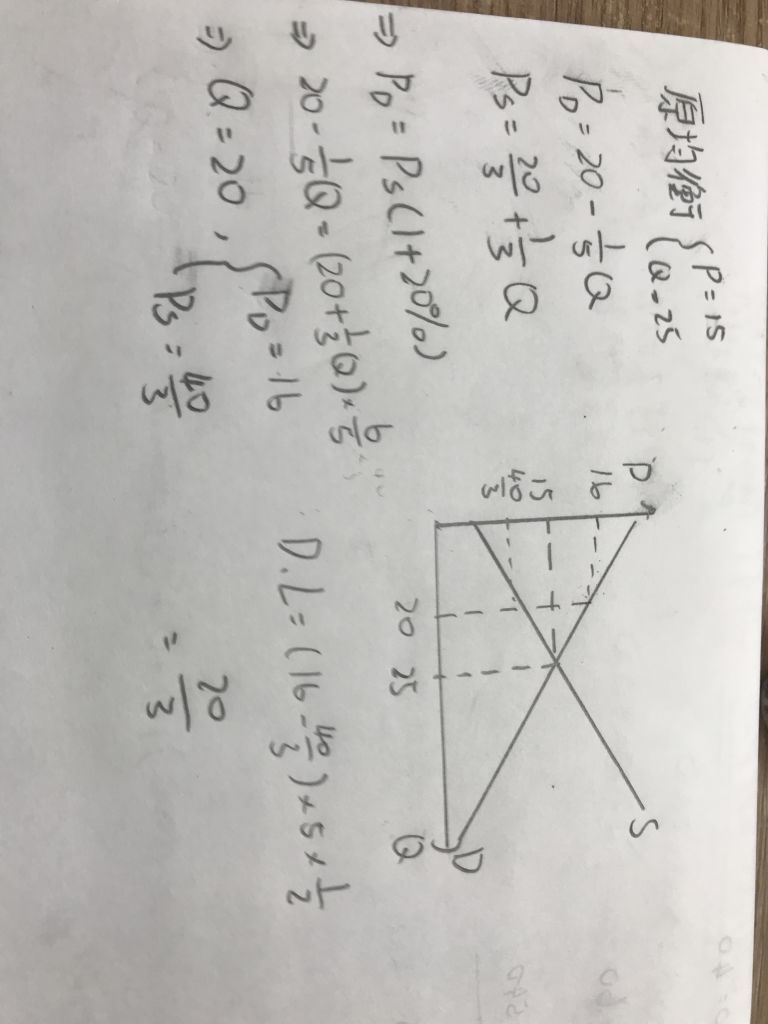 原均衡 { P = 15
Q = 25
P_D = 20 - 1/5 Q
P_S = 20/3 + 1/3 Q
⇒ P_D = P_S (1 + 20%)
⇒ 20 - 1/5 Q = (20 + 1/3 Q) × 6/5
⇒ Q = 20 , { P_D = 16
P_S = 40/3
P
16
15
40/3
20 25
S
D
Q
D.L = (16 - 40/3) × 5 × 1/2
= 20/3